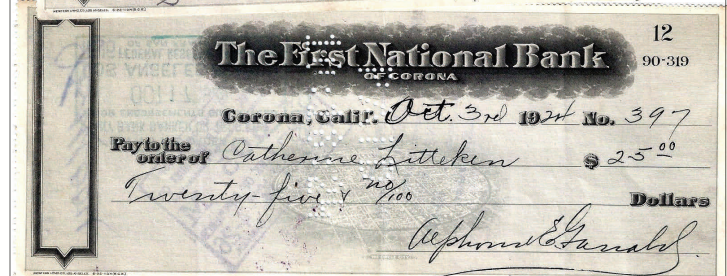 The First National Bank
OF CORONA
12
90-319
Corona, Calif. Oct. 3rd 1924 No. 397
Pay to the order of Catherine Litteken $ 25 00
Twenty-five & no/100 Dollars
Alphonse E.